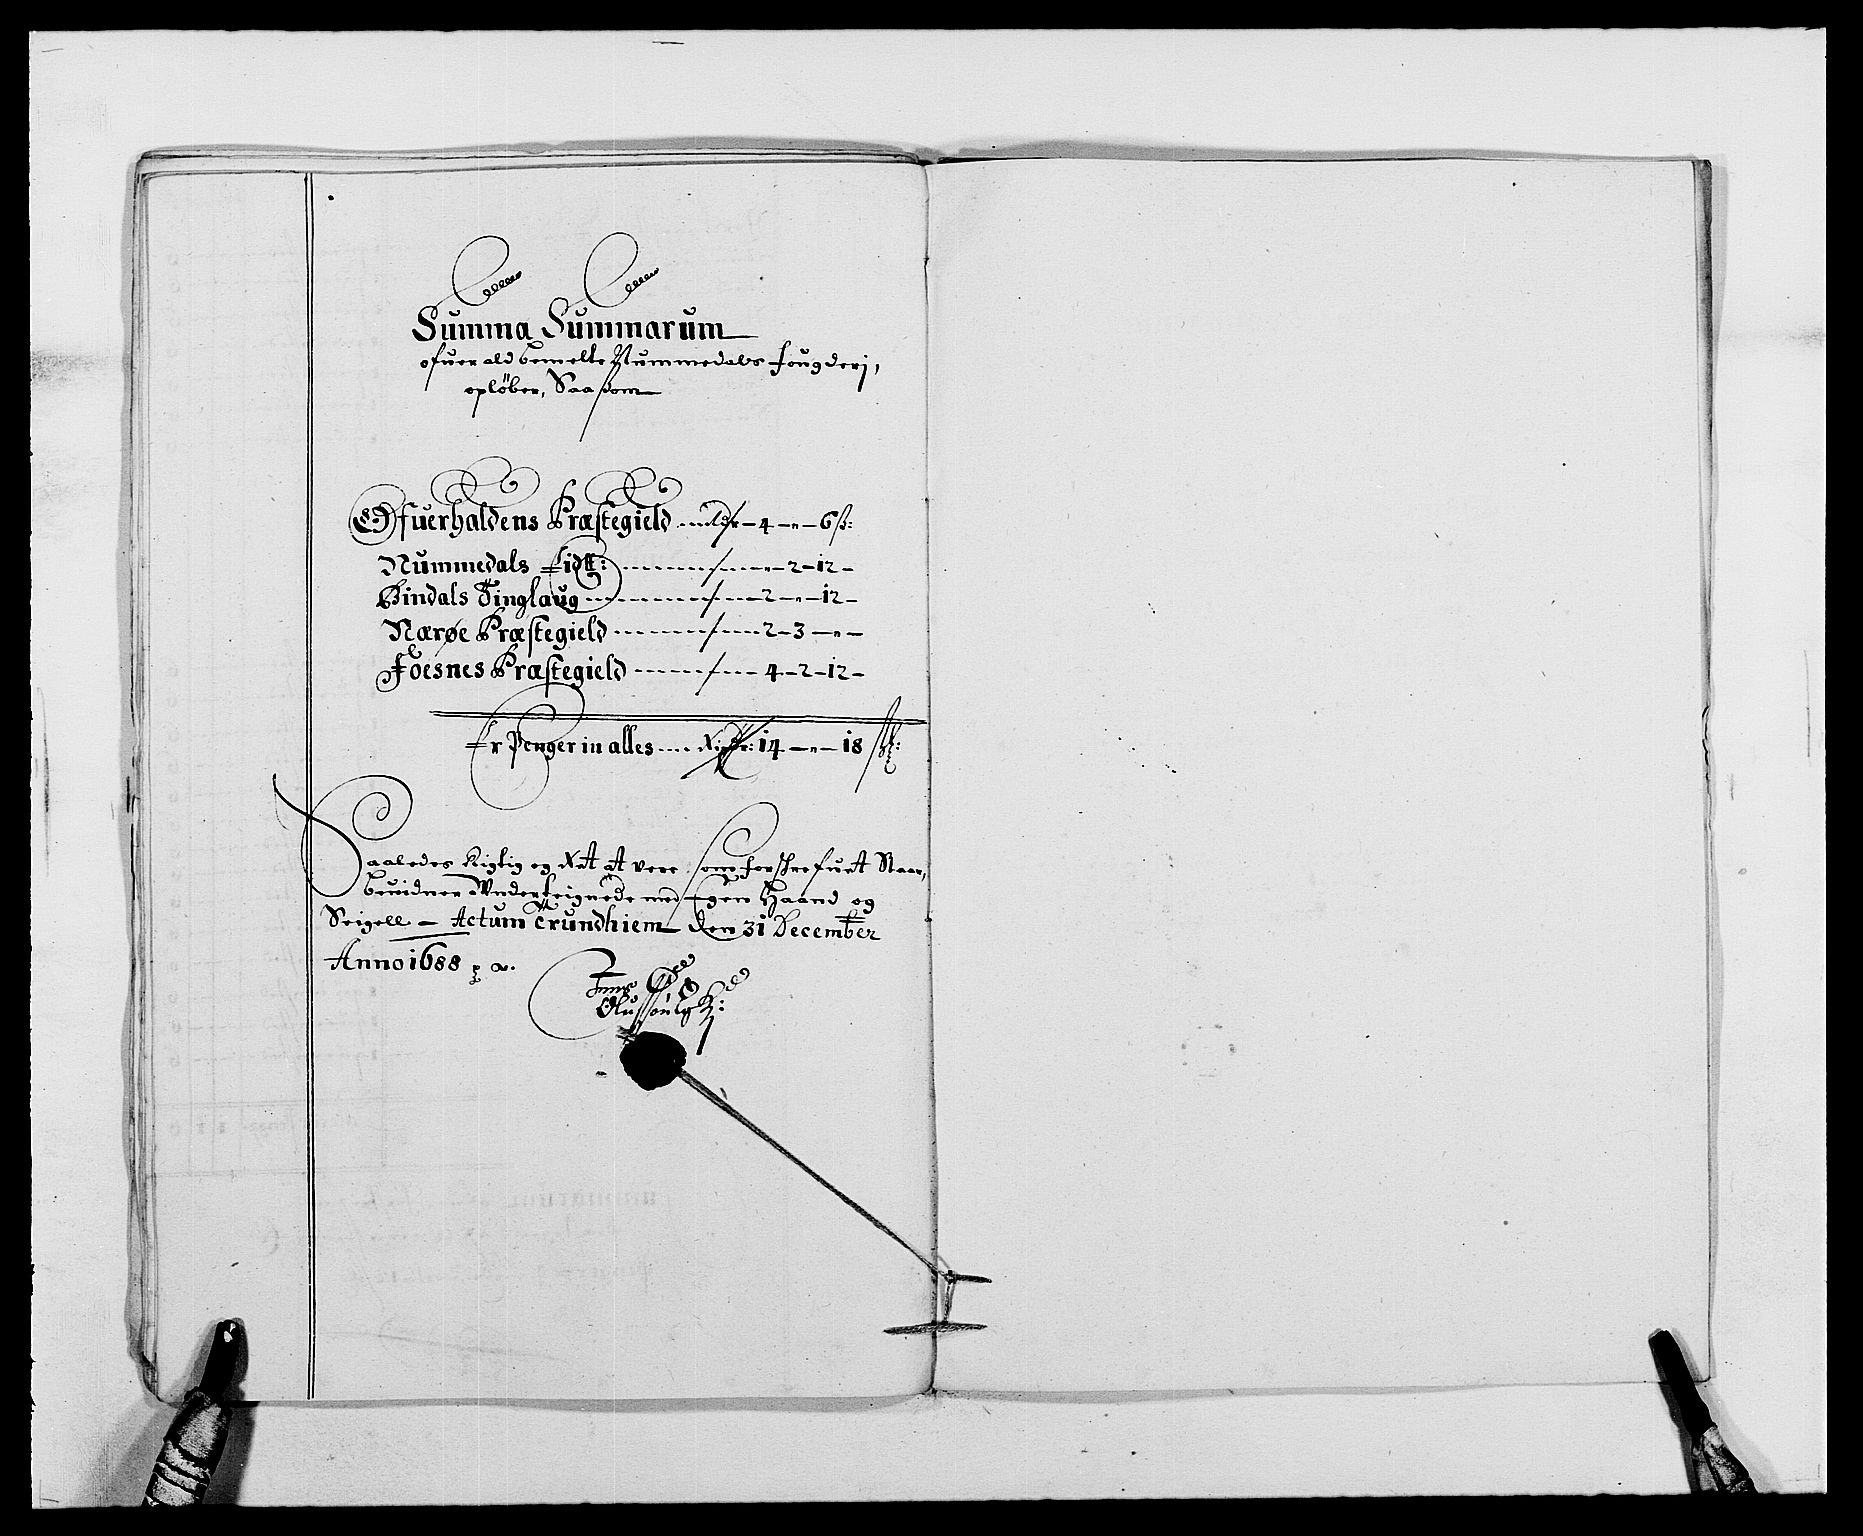 Summa Summarum
ofuer ald bemelte Nummedals fougderj,
opløber, Saasom
Ofuerhaldens Præstegield ... 4 - " - 6 ß:
Nummedals Eid ... " - 2 - 12 -
Bindals Tinglaug ... 2 - " - 12 -
Nærøe Præstegield ... 2 - 3 - " -
Foesnes Præstegield ... 4 - 2 - 12 -
Er Penger in alles .... 14 - " - 18 ß:
Saaledes Rigtig og Ret at vere som forschrefuet Staar,
beuidner Underteignede med Egen Haand og
Seigell - Actum Trundhiem den 31 December
Anno 1688